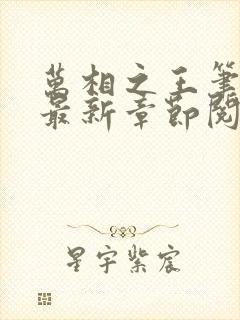 萬相之王筆
最新章節閱
星宇紫宸